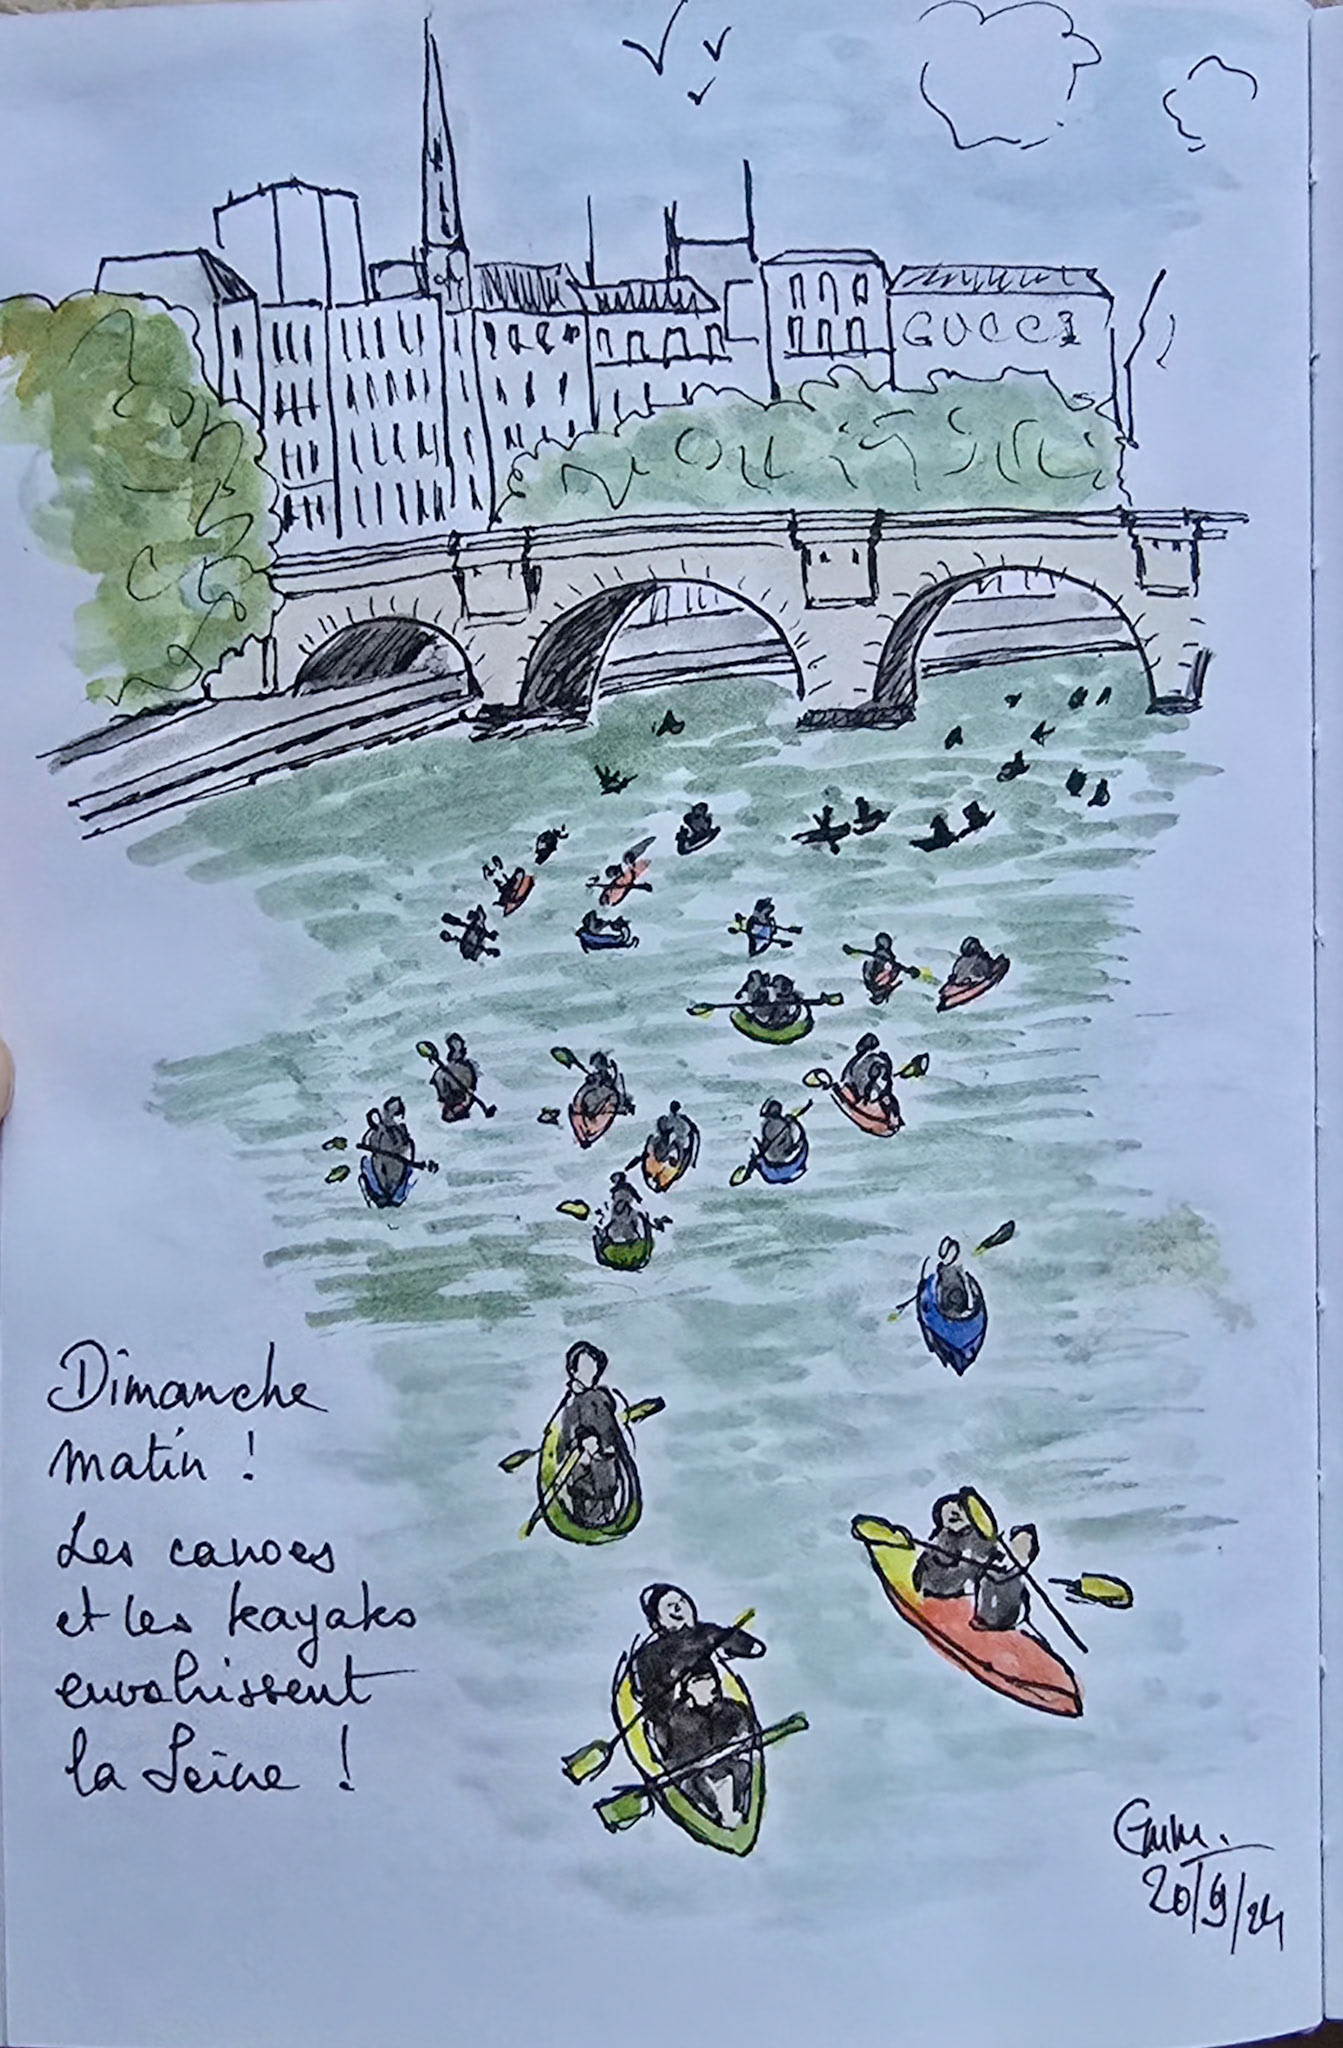 GUCCI
Dimanche
matin !
Les canoës
et les kayaks
envahissent
la Seine !
20/9/24